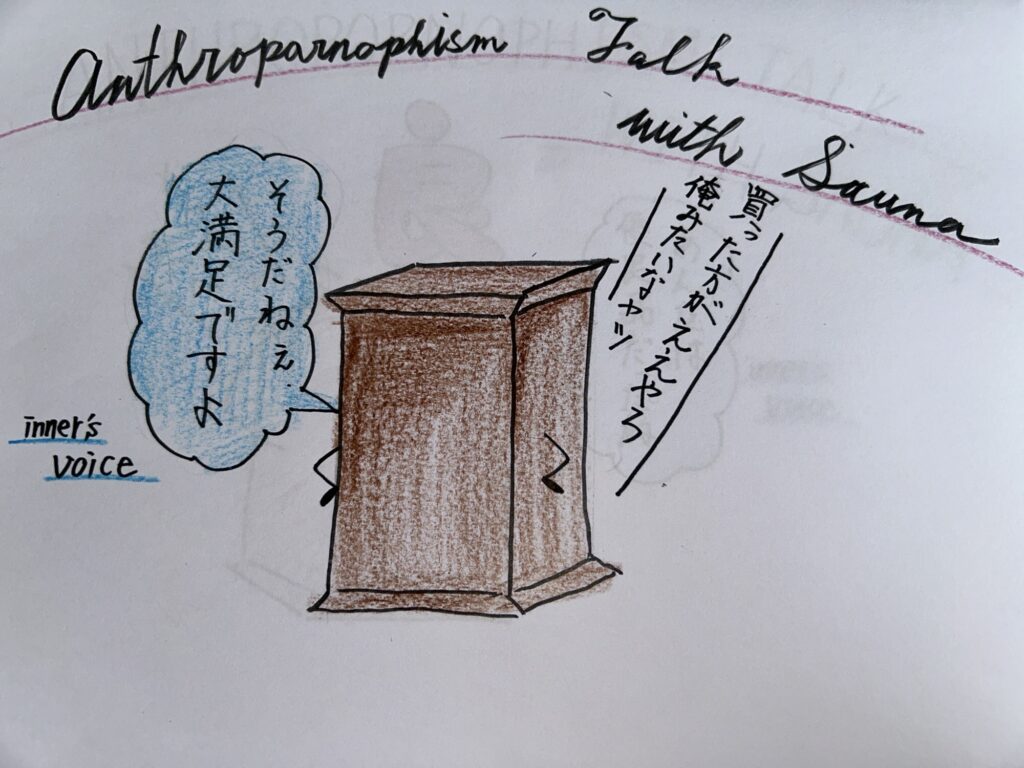 Anthroparnophism Talk
with Sauna
買った方がええやろ
俺みたいなヤツ
そうだねぇ
大満足ですよ
inner's
voice